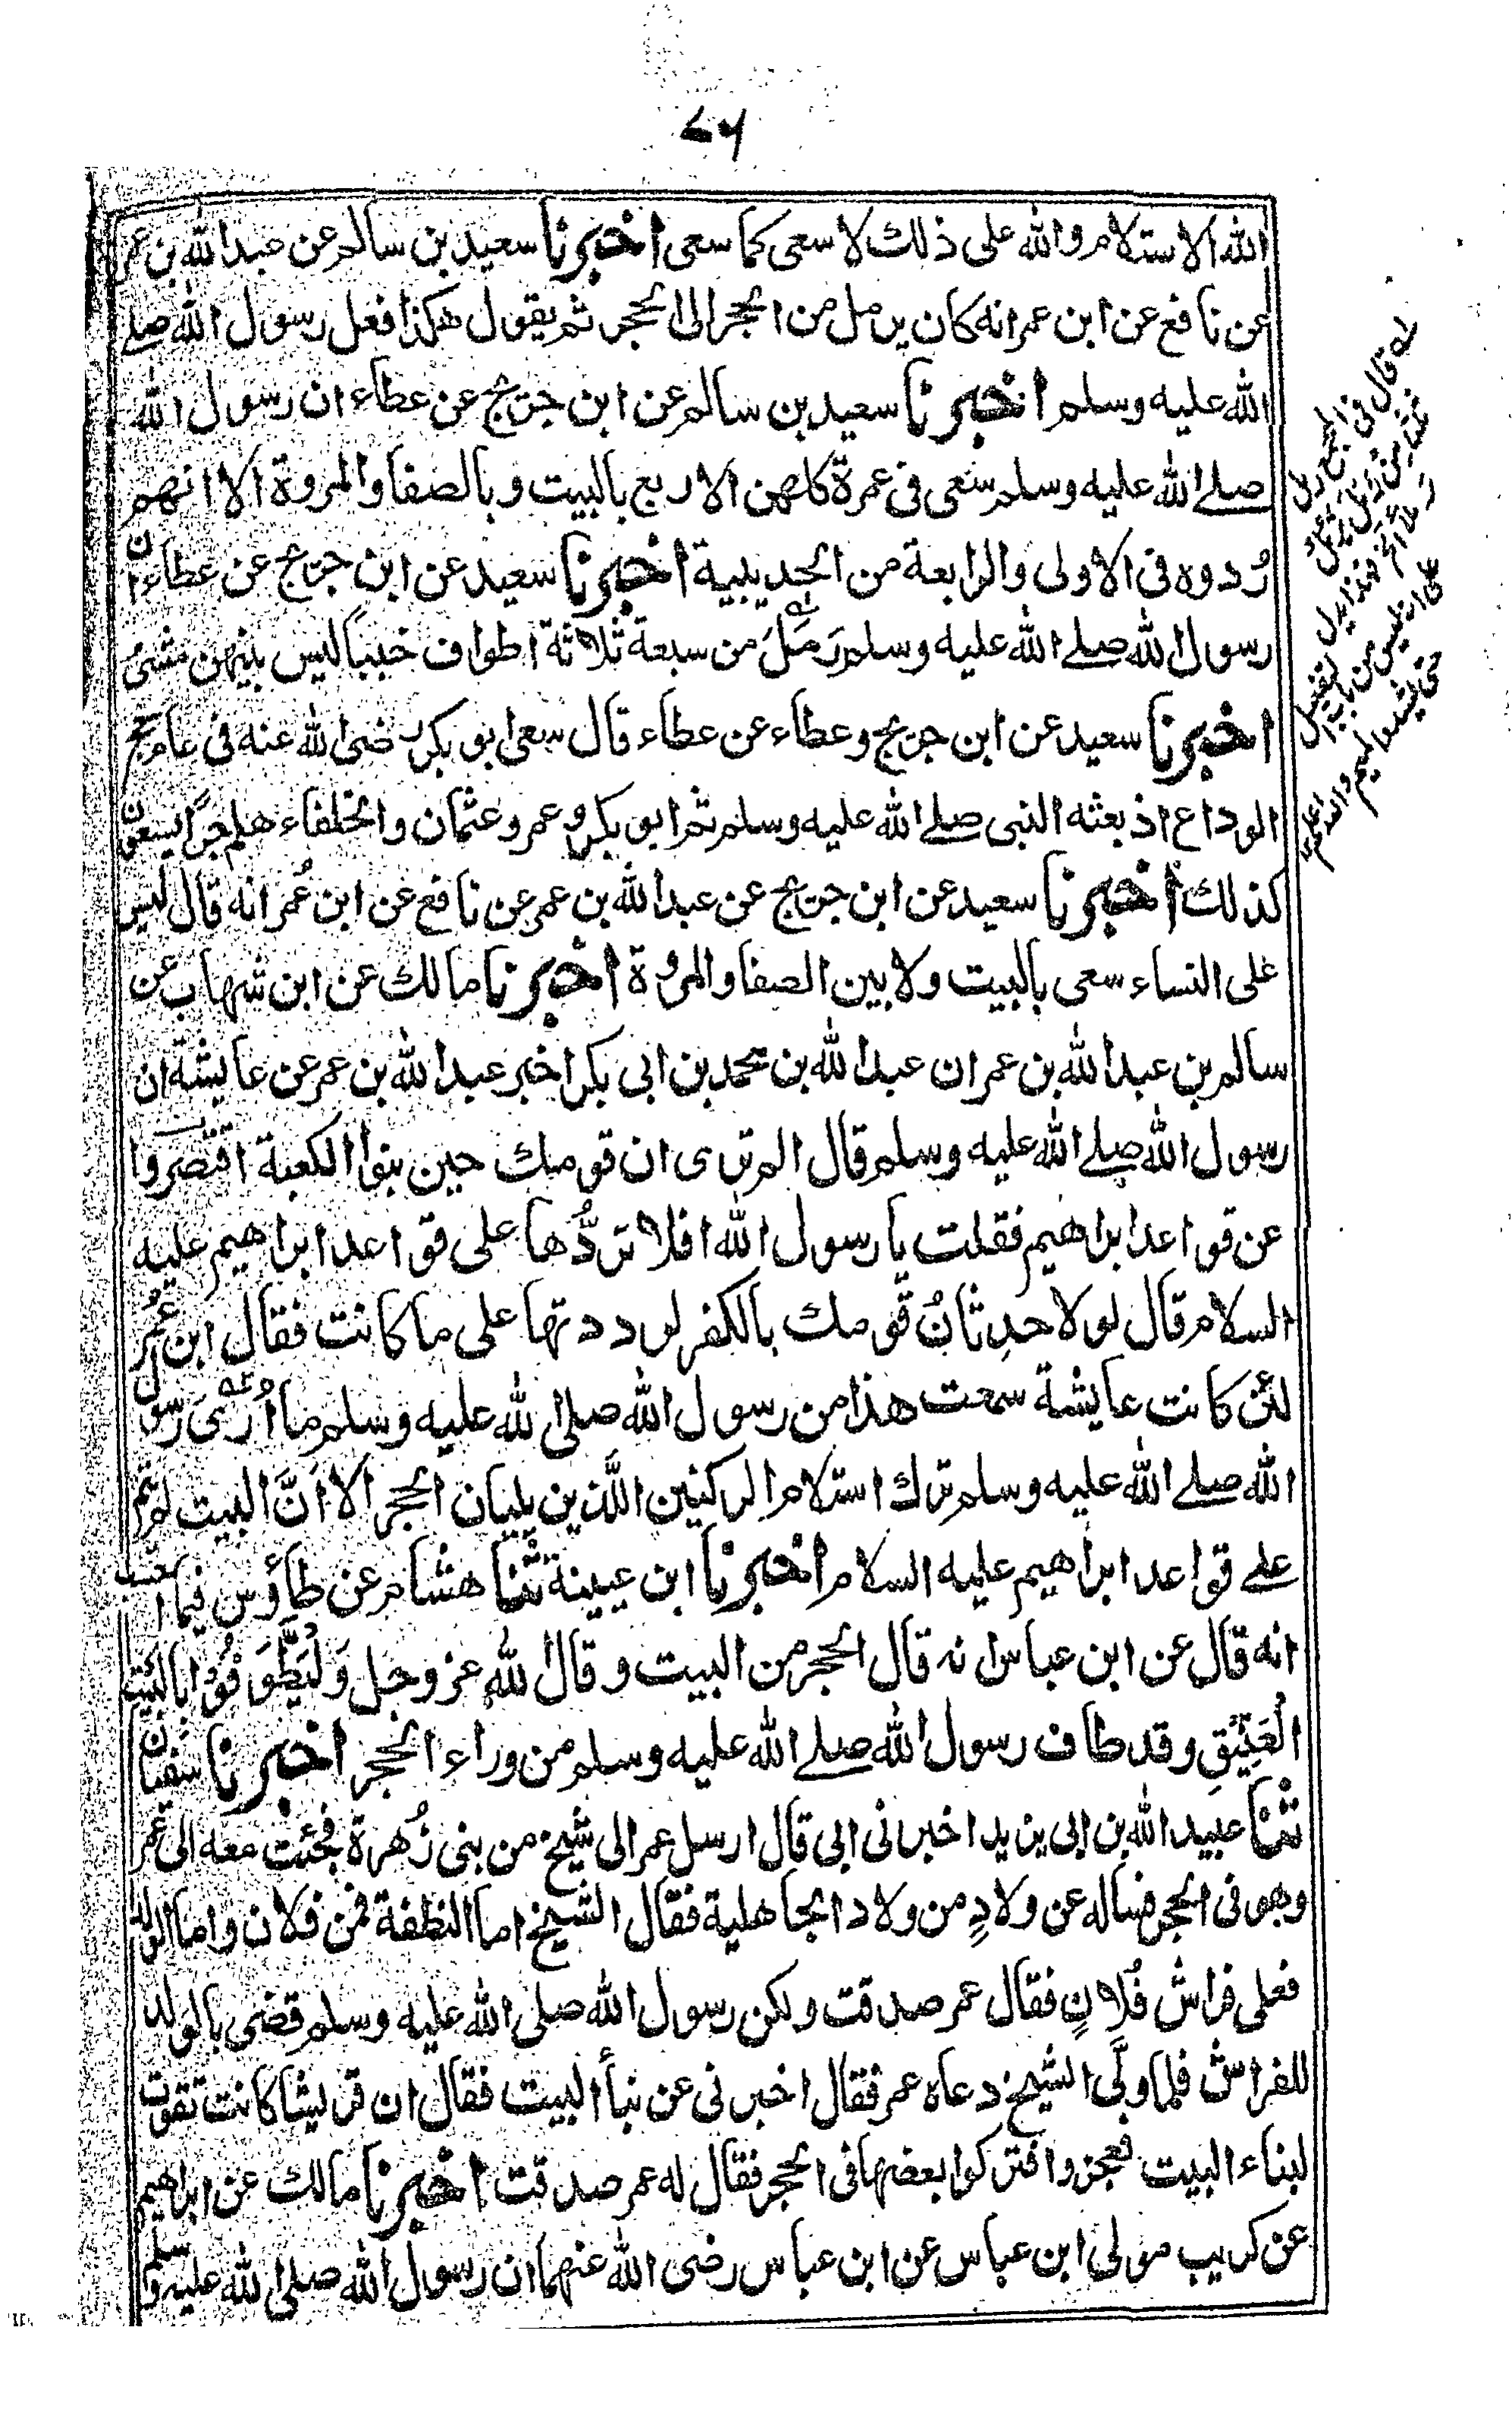 ٧٦
الله الاستلام والله على ذلك لاسعى كما سعى اخبرنا سعيد بن سالم عن عبد الله بن عمر
عن نافع عن ابن عمر انه كان يرمل من الحجر الى الحجر ثم يقول هكذا فعل رسول الله صلے
الله عليه وسلم اخبرنا سعيد بن سالم عن ابن جريج عن عطاء ان رسول الله
صلے الله عليه وسلم سعى فى عمرة كلهن الاربع بالبيت وبالصفا والمروة الا انهم
رُدوه فى الاولى والرابعة من الحديبية اخبرنا سعيد عن ابن جريج عن عطاء ان
رسول الله صلے الله عليه وسلم رَمَلَ من سبعة ثلاثة اطواف خببا ليس بينهن مشىٌ
اخبرنا سعيد عن ابن جريج وعطاء عن عطاء قال سعى ابو بكر رضى الله عنه فى عام حج
الوداع اذ بعثه النبى صلے الله عليه وسلم ثم ابو بكر وعمر وعثمان والخلفاء هلم جرًا يسعون
كذلك اخبرنا سعيد عن ابن جريج عن عبد الله بن عمر عن نافع عن ابن عُمر انه قال ليس
على النساء سعى بالبيت ولا بين الصفا والمروة اخبرنا مالك عن ابن شهاب عن
سالم بن عبد الله بن عمر ان عبد الله بن محمد بن ابى بكر اخبر عبد الله بن عمر عن عايشة ان
رسول الله صلے الله عليه وسلم قال الم ترى ان قومك حين بنوا الكعبة اقتصروا
عن قواعد ابراهيم فقلت يا رسول الله افلا تردُّها على قواعد ابراهيم عليه
السلام قال لولا حدِثانُ قومك بالكفر لرددتها على ما كانت فقال ابن عُمر
لئن كانت عايشة سمعت هذا من رسول الله صلى الله عليه وسلم ما اُرٰى رسول
الله صلے الله عليه وسلم ترك استلام الركنين اللَّذين يليان الحجر الا اَنَّ البيت لم يتم
علے قواعد ابراهيم عليه السلام اخبرنا ابن عيينة ثنا هشام عن طاؤس فيما احسب
انه قال عن ابن عباس انه قال الحجر من البيت وقال الله عز وجل وَلْيَطَّوَّفُوْا بِالْبَيْتِ
الْعَتِيْقِ وقد طاف رسول الله صلے الله عليه وسلم من وراء الحجر اخبرنا سفيان
ثنا عبيد الله بن ابى يزيد اخبرنى ابى قال ارسل عمر الى شيخ من بنى زُهرة فجئت معه الى عمر
وهو فى الحجر فساله عن ولادِ من ولاد الجاهلية فقال الشيخ اما النطفة فمن فلان واما الولد
فعلى فراش فُلانٍ فقال عمر صدقت ولكن رسول الله صلى الله عليه وسلم قضى بالولد
للفراش فلما ولَّى الشيخ دعاه عمر فقال اخبرنى عن بناء البيت فقال ان قريشا كانت تقوت
لبناء البيت فعجزوا فتركوا بعضها فى الحجر فقال له عمر صدقت اخبرنا مالك عن ابراهيم
عن كريب مولى ابن عباس عن ابن عباس رضى الله عنهما ان رسول الله صلى الله عليه وسلم